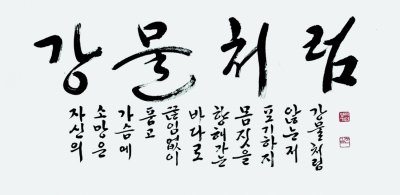 강물처럼
자신의
소망은
가슴에
품고
끊임없이
바다로
향해가는
몸짓을
포기하지
않는저
강물처럼